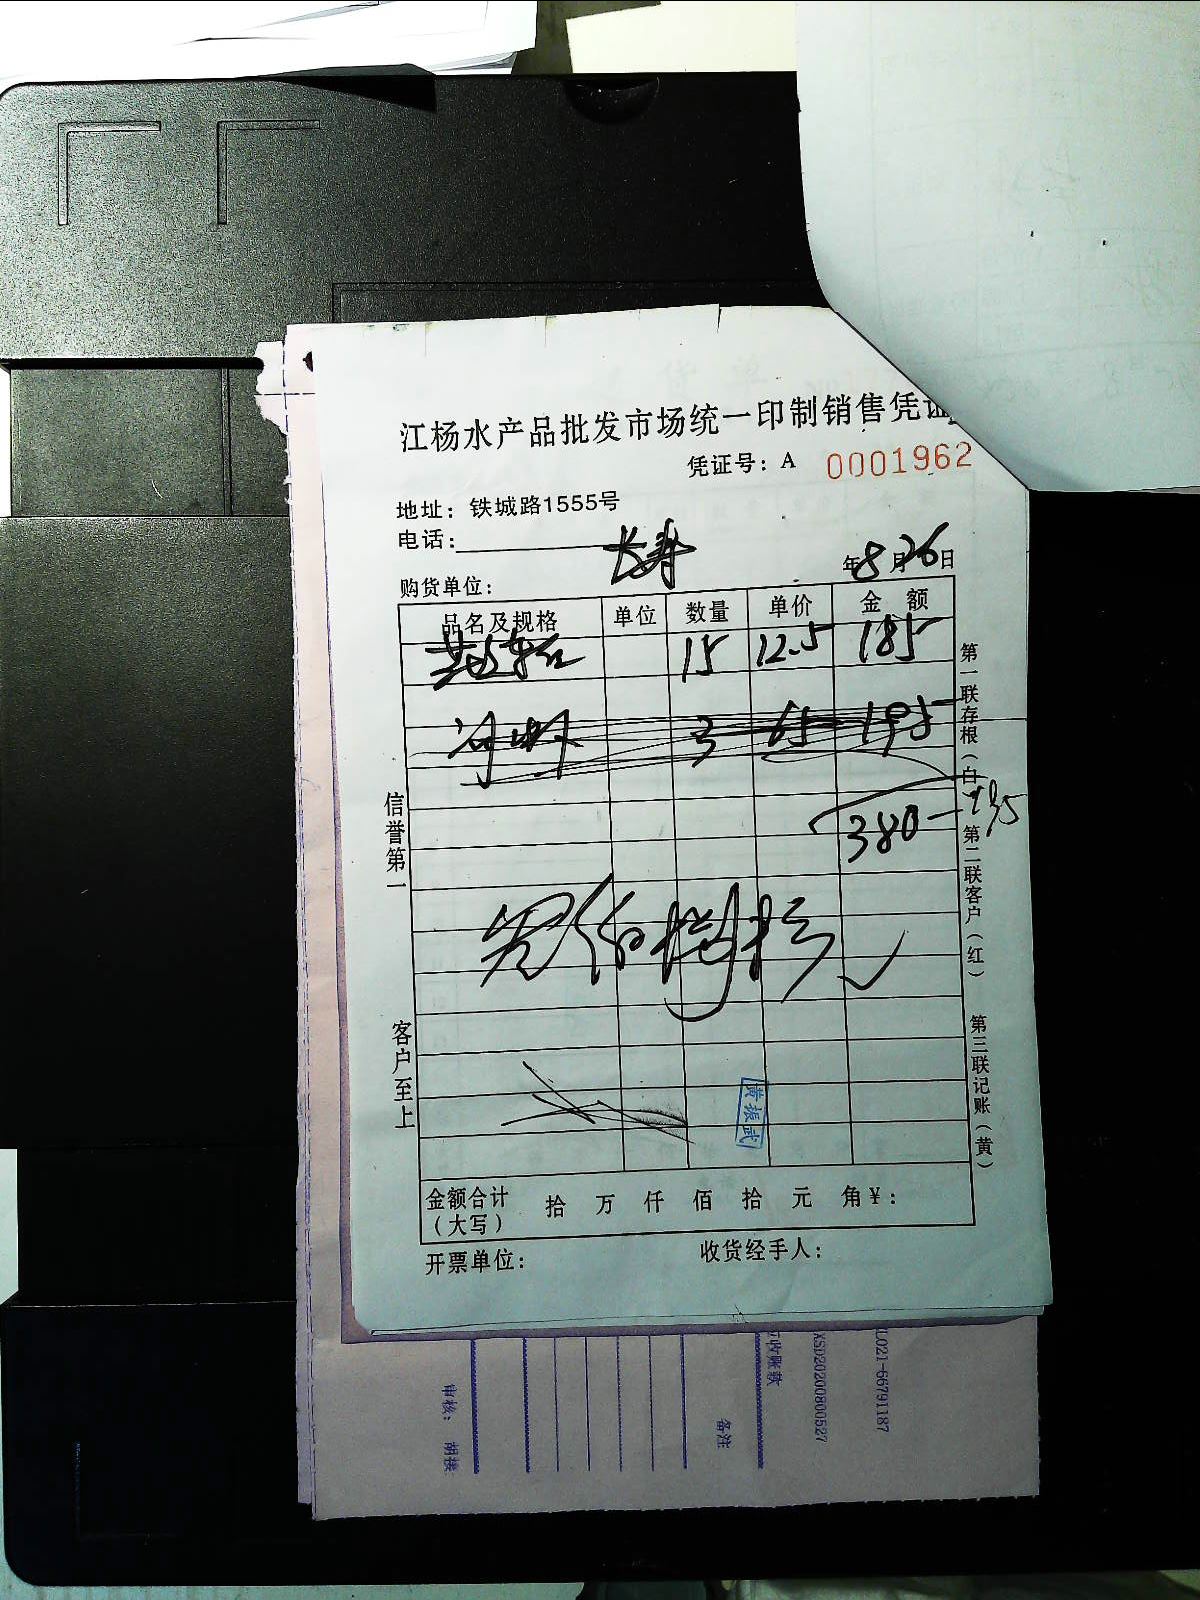 江杨水产品批发市场统一印制销售凭证
凭证号：A 0001962
地址：铁城路1555号
电话：
长寿
年8月26日
购货单位：
品名及规格 单位 数量 单价 金额
15 12.5 185
冷虾 3 65 195
380-195
信誉第一
客户至上
第一联存根（白） 第二联客户（红） 第三联记账（黄）
黄振武
金额合计（大写） 拾 万 仟 佰 拾 元 角 ¥：
开票单位： 收货经手人：
021-66791187
XSD20200800527
应收账款
备注
审核：